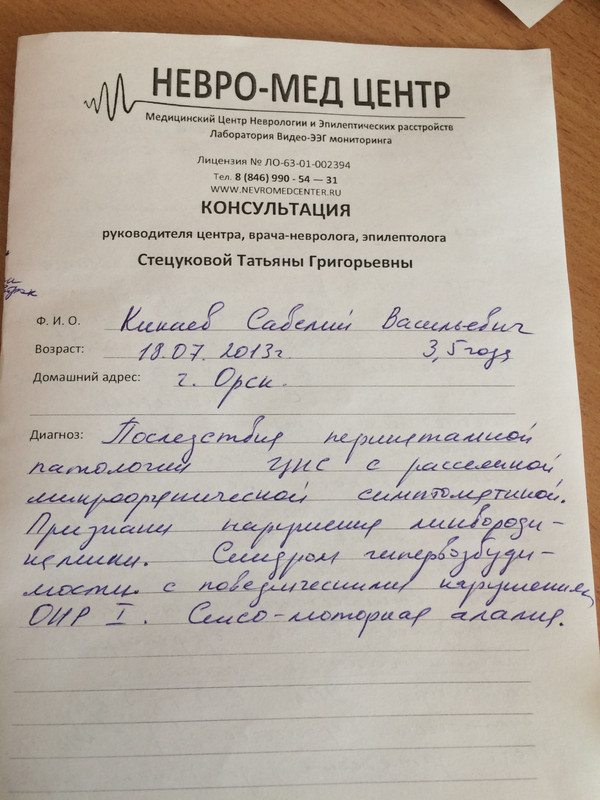 НЕВРО-МЕД ЦЕНТР
Медицинский Центр Неврологии и Эпилептических расстройств
Лаборатория Видео-ЭЭГ мониторинга
Лицензия № ЛО-63-01-002394
Тел. 8 (846) 990 - 54 — 31
WWW.NEVROMEDCENTER.RU
КОНСУЛЬТАЦИЯ
руководителя центра, врача-невролога, эпилептолога
Стецуковой Татьяны Григорьевны
Ф. И. О. Кинаев Савелий Васильевич
Возраст: 18.07.2013г. 3,5 года
Домашний адрес: г. Орск.
Диагноз: Последствия перинатальной
патологии ЦНС с рассеянной
микроорганической симптоматикой.
Признаки нарушения ликвороди-
намики. Синдром гипервозбуди-
мости с поведенческими нарушениями
ОНР I. Сенсо-моторная алалия.